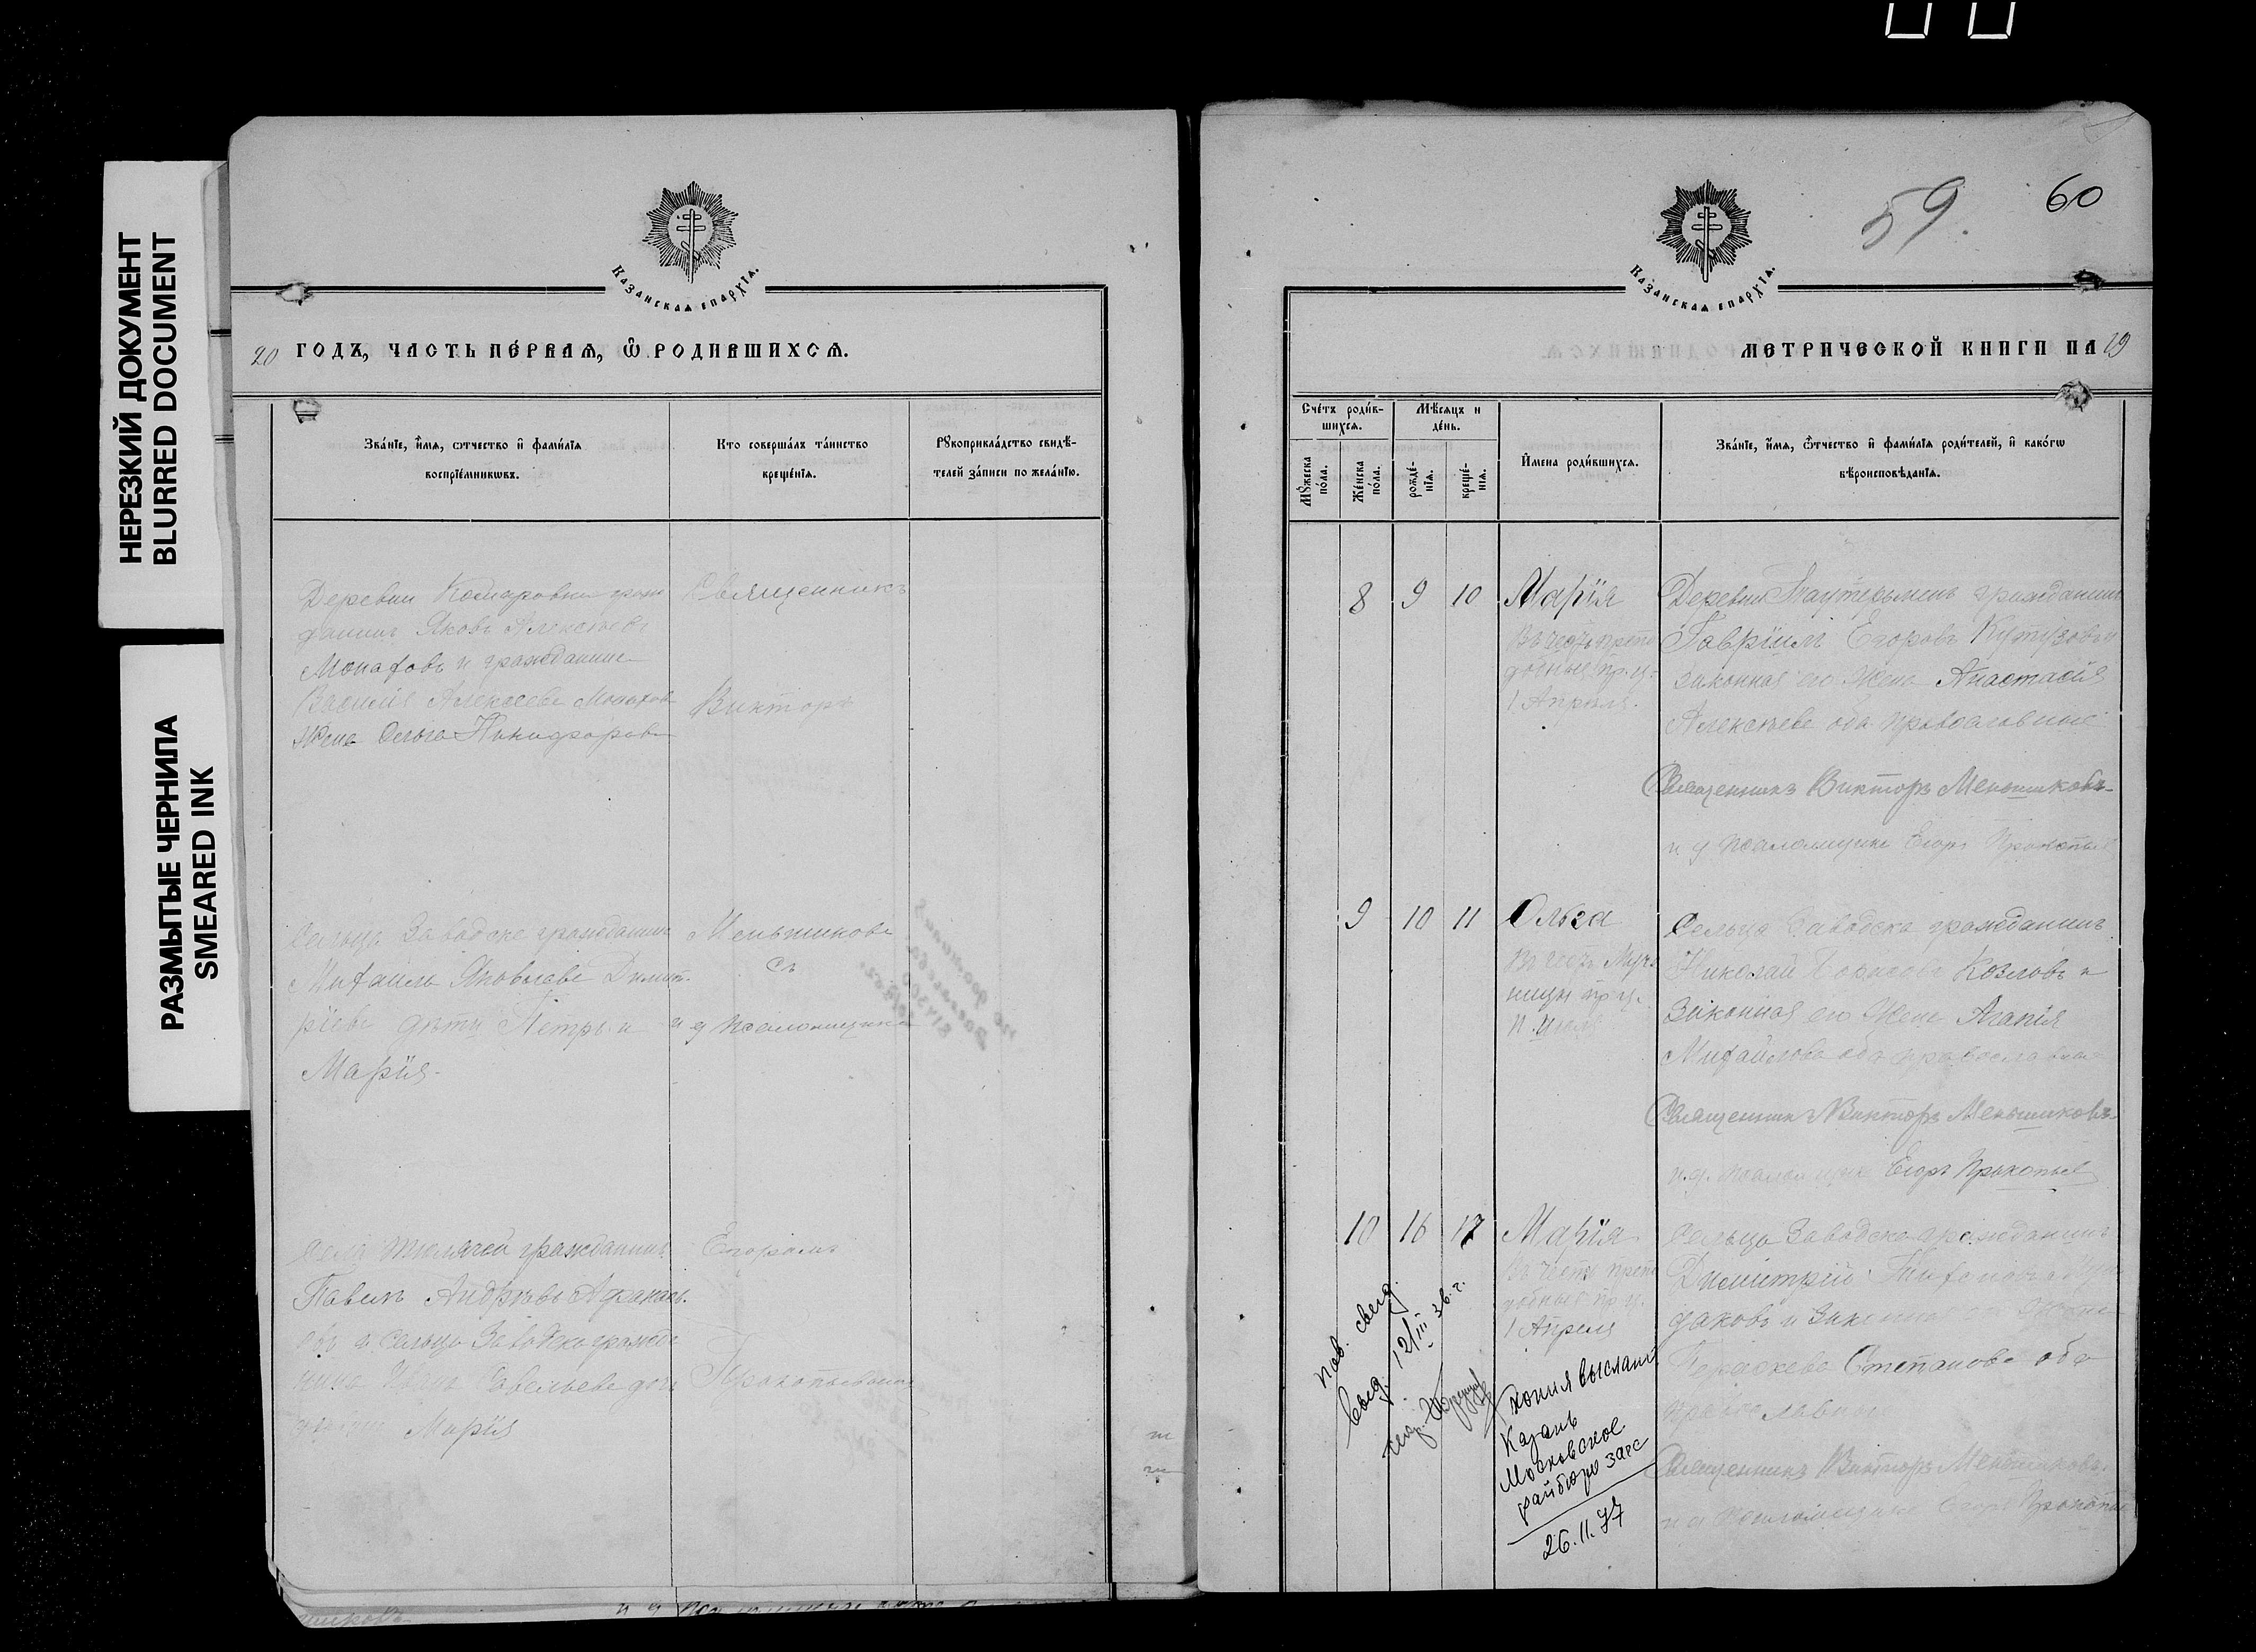 НЕРЕЗКИЙ ДОКУМЕНТ
BLURRED DOCUMENT
РАЗМЫТЫЕ ЧЕРНИЛА
SMEARED INK
Казанская епархїѧ.
20 годъ, часть пе́рваѧ, ѡ҆ родившихсѧ.
Зва́нїе, и҆́мѧ, ѻтчество и҆ фами́лїѧ
воспрїе́мникѡвъ.
Кто соверша́лъ та́инство
креще́нїѧ.
Рꙋкоприкла́дство свидѣ́-
телей за́писи по жела́нїю.
Деревни Комаровки граж
данинъ Яковъ Алексѣевъ
Монаховъ и гражданина
Василія Алексеева Монахов
жена Ольга Никифорова
Священникъ
Викторъ
Сельца Заводска гражданина
Михаила Яковлева Димит
ріева дѣти Петръ и
Марїя
Меньшиковъ
съ
и д псаломщика
Села гражданинъ
Павелъ Андрѣевъ Афанась
евъ и Сельца Заводска гражда
нина Ивана Савельева дочь
Марїя
Егоромъ
Прокопьевымъ
59. 60
Казанская епархїѧ.
метрической книги на 19
Сче́тъ роди́в-
шихсѧ.
Мꙋ́жеска
по́ла.
Же́нска
по́ла.
Мѣ́сѧцъ и
де́нь.
рожде́-
нїѧ.
креще́-
нїѧ.
И҆мена роди́вшихсѧ.
Зва́нїе, и҆́мѧ, ѻ҆́тчество и҆ фами́лїѧ роди́телей, и҆ како́гѡ
вѣроисповѣ́данїѧ.
8 9 10 Марїя
Въ честь препо
добныя пр. ц.
1 Апрѣля.
Деревни гражданинъ
Гаврїилъ Егоровъ Кутузовъ и
законная его жена Анастасїя
Алексѣева оба православные
Священникъ Викторъ Меньшиковъ
и д псаломщика Егоръ Прокопьев
9 10 11 Ольга
Въ честь Муче
ницы пр. ц.
11 Июля
Сельца Заводска гражданинъ
Николай Борисовъ Козловъ и
Законная его жена Агапїя
Михайлова оба православные
Священникъ Викторъ Меньшиковъ
и.д. псаломщика Егоръ Прокопьев
10 16 17 Марїя
Въ честь препо
добныя пр. ц.
1 Апреля
Сельца Заводска гражданинъ
Димитрїй
и Законная жена
Параскева Степанова оба
православные
Священникъ Викторъ Меньшиковъ
и д псаломщика Егоръ Прокопьев
пов. свид.
выд. 12/III 36 г.
копия выслана
Казань
Московское
райбюро загс
26.11.77